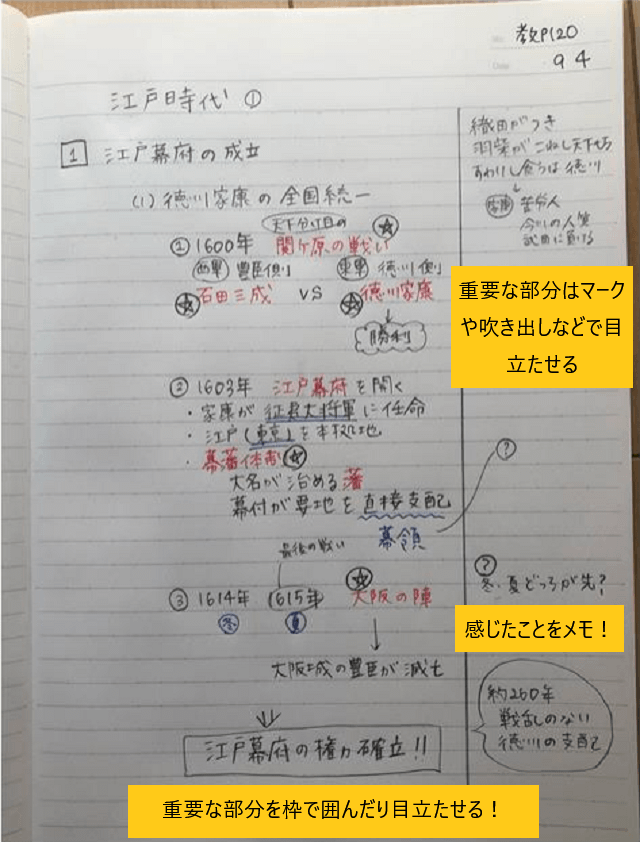 教P120
9 4
江戸時代 ①
1 江戸幕府の成立
(1) 徳川家康の全国統一
天下分け目の
① 1600年 関ヶ原の戦い
西軍 豊臣側 東軍 徳川側
石田三成 VS 徳川家康
勝利
② 1603年 江戸幕府を開く
・家康が征夷大将軍に任命
・江戸(東京)を本拠地
・幕藩体制
大名が治める藩
幕府が要地を直接支配
幕領
最後の戦い
③ 1614年 1615年 大阪の陣
冬 夏
大阪城の豊臣が滅亡
江戸幕府の権力確立!!
織田がつき
羽柴がこねし天下もち
すわりし食うは徳川
家康 苦労人
武田に負ける
重要な部分はマーク
や吹き出しなどで目
立たせる
?
?
冬・夏どっちが先?
感じたことをメモ！
約260年
戦乱のない
徳川の支配
重要な部分を枠で囲んだり目立たせる！